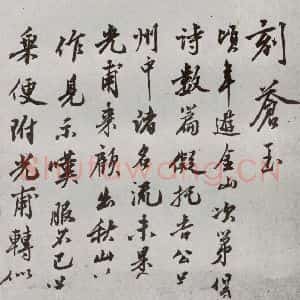 刻蒼玉
頃年遊金山次第得
詩數篇擬托吉公
州中諸名流未是
光甫來顧出秋山
作見示嘆服不已
乘便附光甫轉似